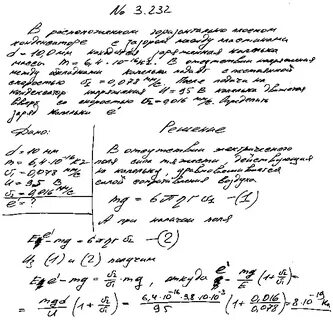 № 3.232
В расположенном горизонтально плоском
конденсаторе с зазором между пластинами
d = 10,0 мм находится заряженная капелька
массы m = 6,4·10⁻¹⁶ кг. В отсутствии напряжения
между обкладками капелька падает с постоянной
скоростью υ₁ = 0,078 мм/с. После подачи на
конденсатор напряжения U = 95 В капелька движется
вверх со скоростью υ₂ = 0,016 мм/с. Определить
заряд капельки e'
Дано:
d = 10 мм
m = 6,4·10⁻¹⁶ кг
υ₁ = 0,078 мм/с
U = 95 В
υ₂ = 0,016 мм/с
e' = ?
Решение
В отсутствии электрического
поля сила тяжести, действующая
на капельку, уравновешивается
силой сопротивления воздуха
mg = 6πηr υ₁ – (1)
А при наличии поля
Ee' – mg = 6πηr υ₂ – (2)
Из (1) и (2) получим
Ee' – mg = υ₂/υ₁ · mg, откуда e' = mg/E (1 + υ₂/υ₁) =
= mgd/U (1 + υ₂/υ₁) = 6,4·10⁻¹⁶·9,8·10·10⁻³/95 (1 + 0,016/0,078) = 8·10⁻¹⁹ Кл